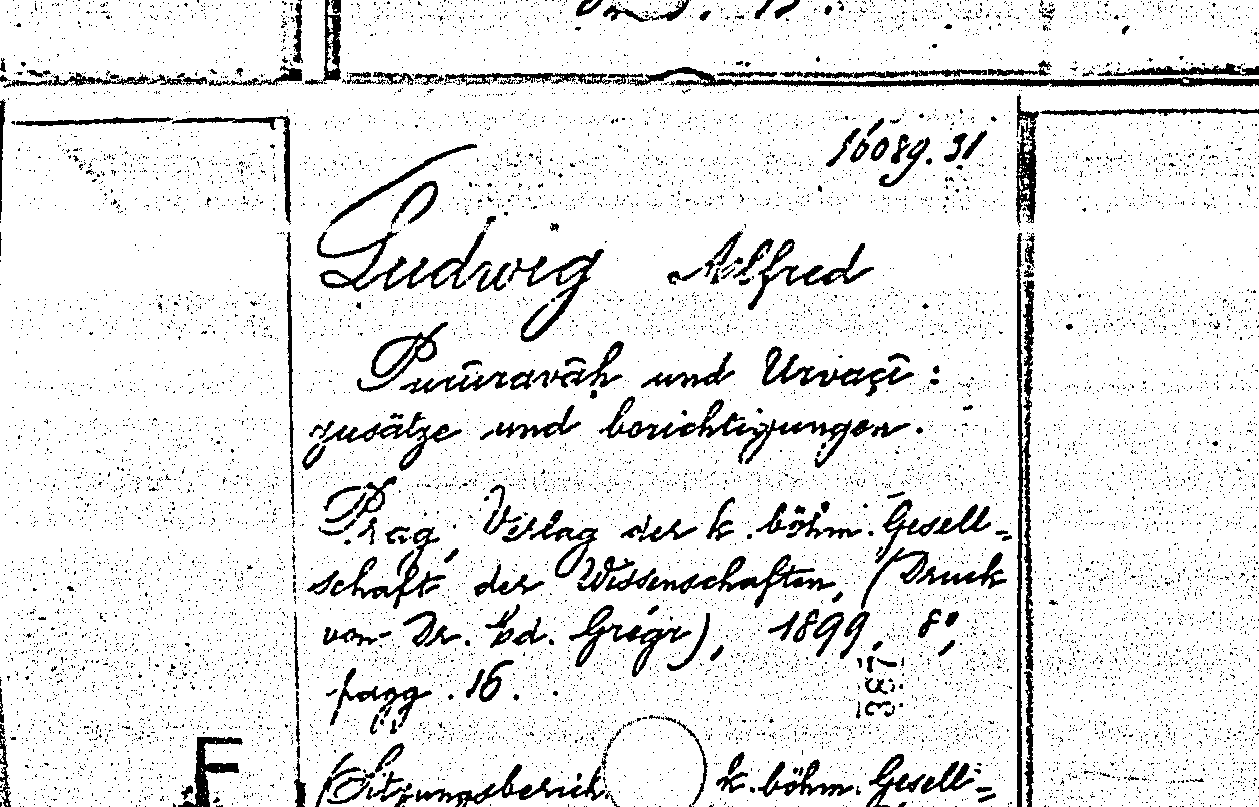 16089.31
Ludwig Alfred
Purūravāḥ und Urvaçī :
zusätze und berichtigungen.
Prag, Verlag der k. böhm. Gesell-
schaft der Wissenschaften, (Druck
von Dr. Ed. Grégr), 1899, 8°,
pagg. 16.
387
F
(Sitzungsberich k. böhm. Gesell-